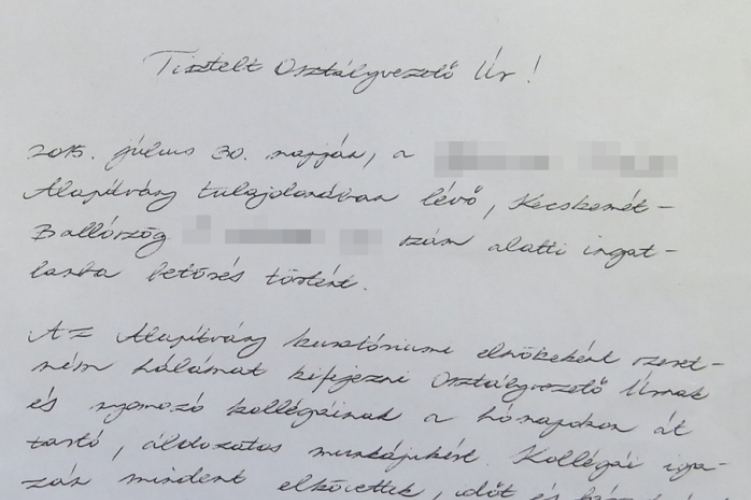 Tisztelt Osztályvezető Úr!
2015. július 30. napján, a
Alapítvány tulajdonában lévő, Kecskemét-
Ballószög szám alatti ingat-
lanba betörés történt.
Az Alapítvány kuratóriumi elnökeként szeret-
ném hálámat kifejezni Osztályvezető Úrnak
és nyomozó kollégáinak a hónapokon át
tartó, áldozatos munkájukért. Kollégái iga-
zán mindent elkövettek, időt és